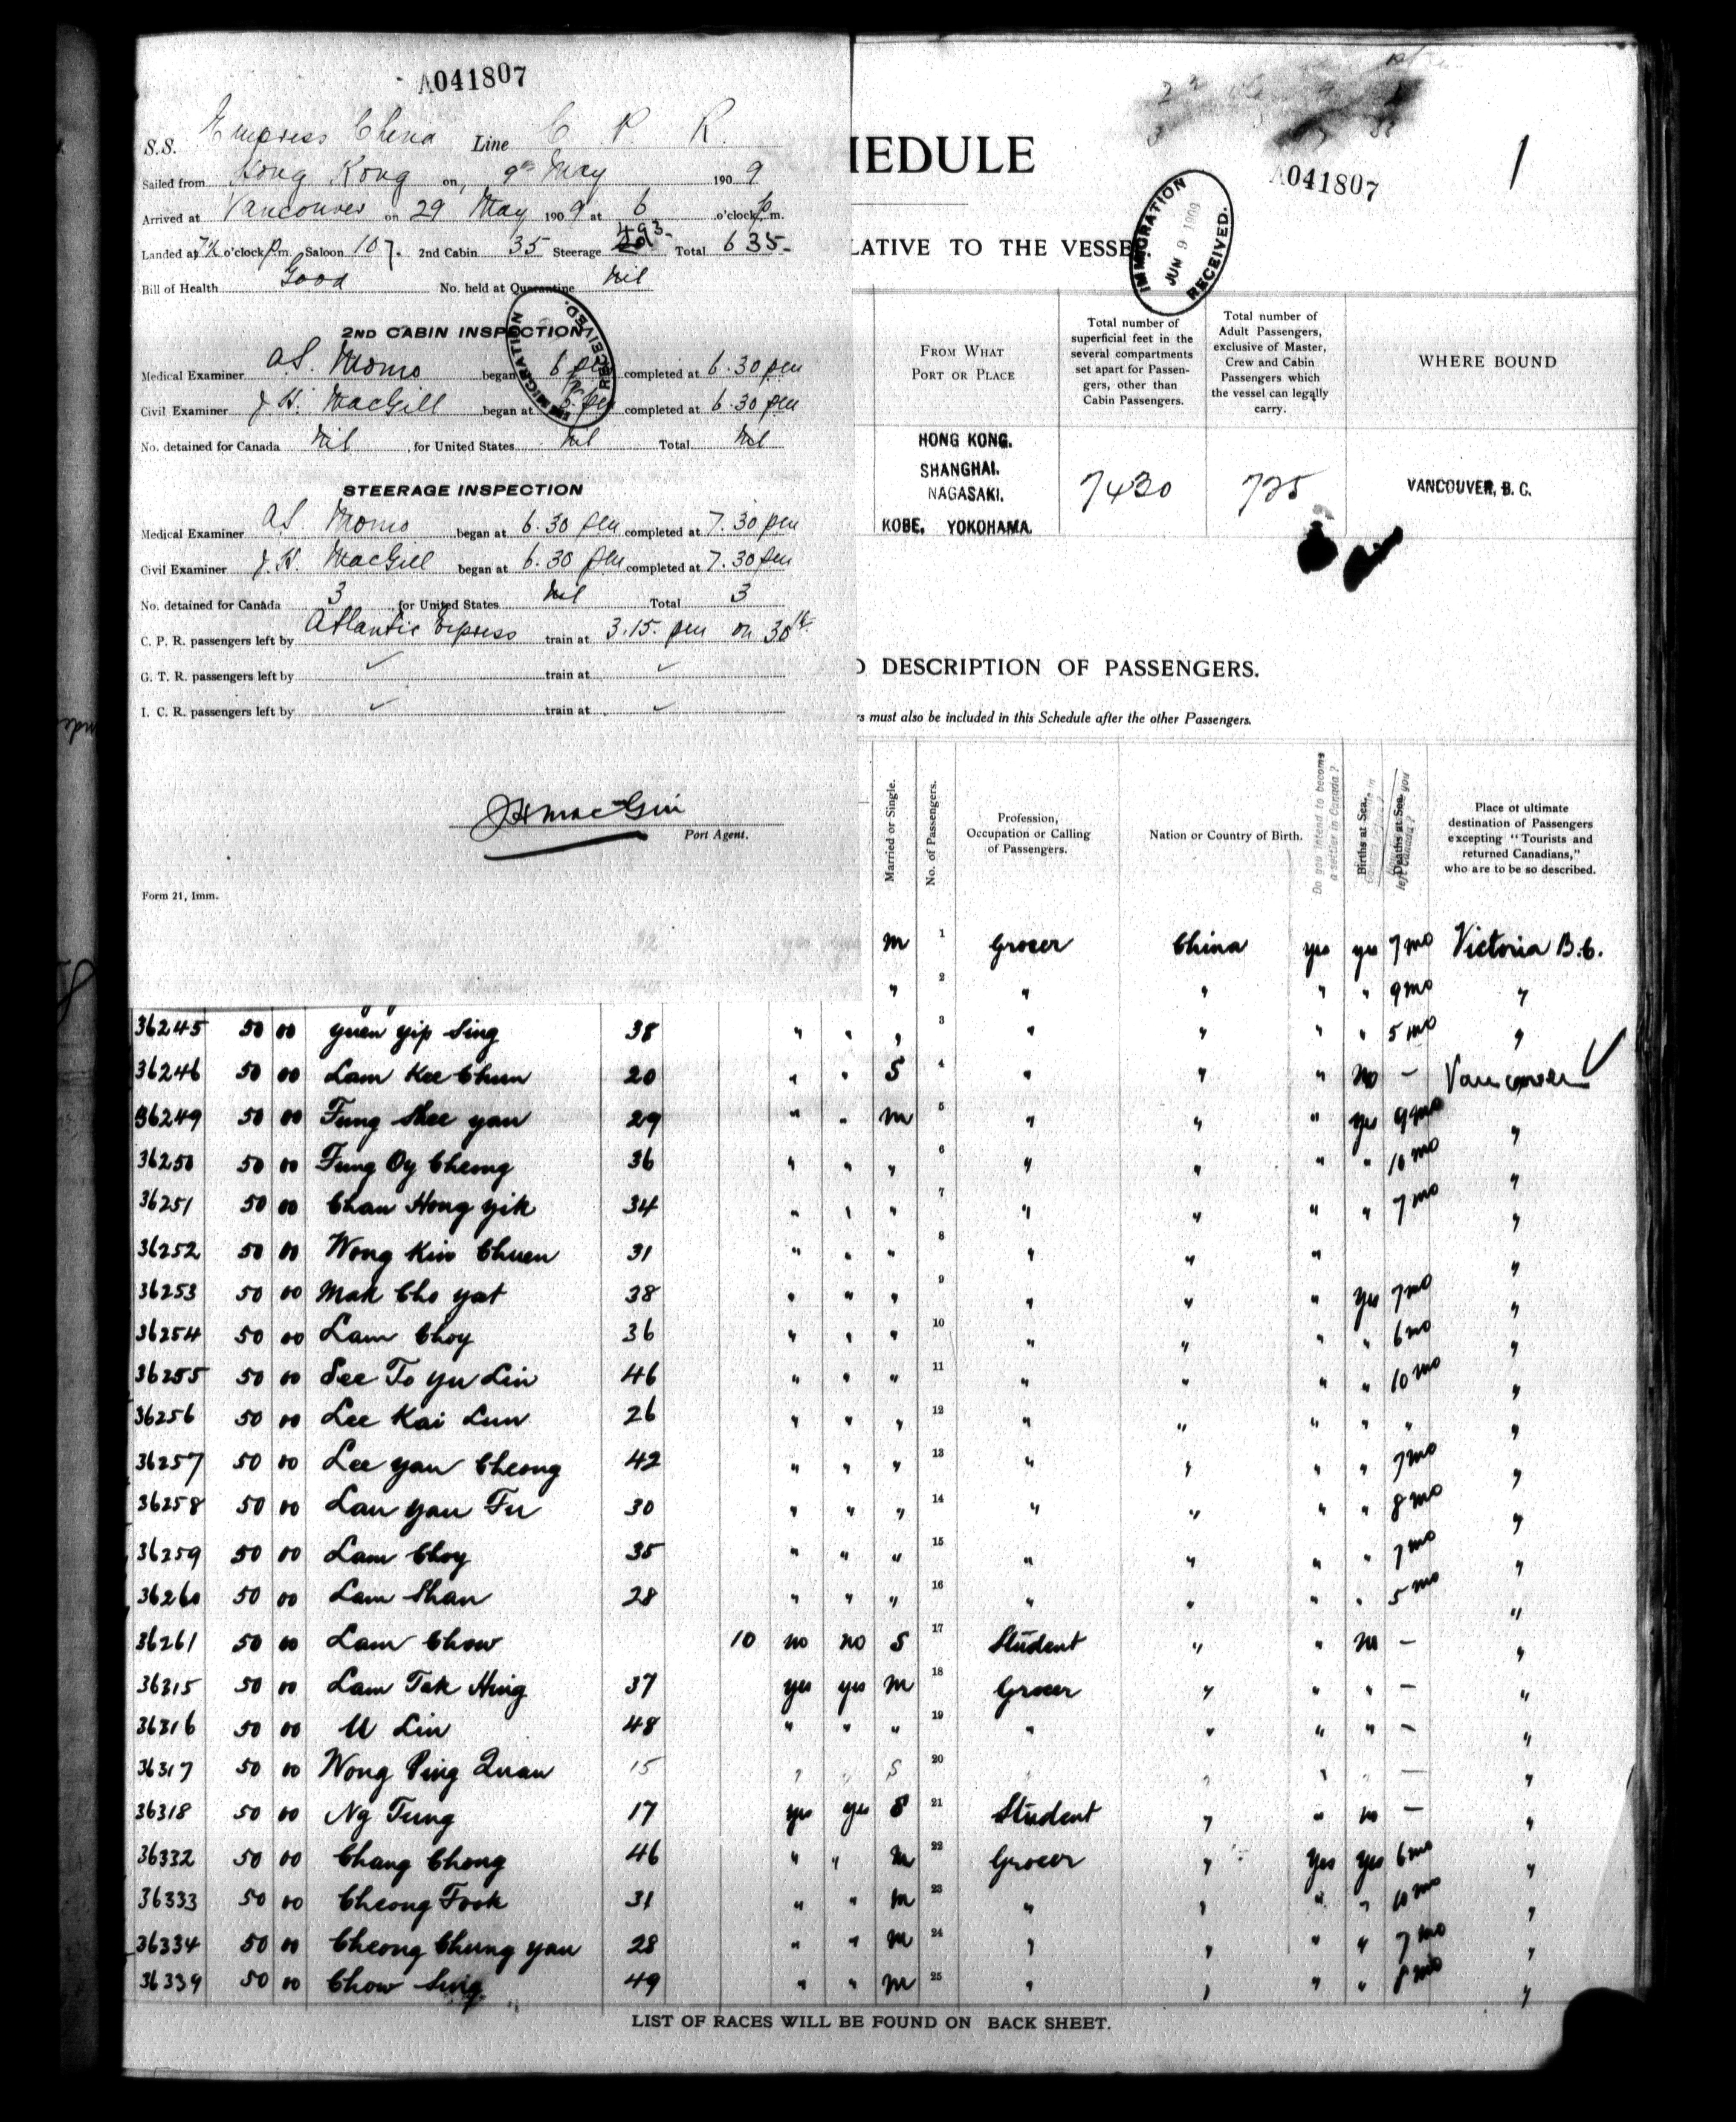 A041807
S.S. Empress China Line C P R.
Sailed from Hong Kong on, 9th May 1909
Arrived at Vancouver on 29 May 1909 at 6 o'clock p.m.
Landed at 7½ o'clock p.m. Saloon 107. 2nd Cabin 35 Steerage 493 Total 635-
Bill of Health Good No. held at Quarantine nil
2ND CABIN INSPECTION
Medical Examiner A.S. Monro began 6 pm completed at 6.30 pm
Civil Examiner J.H. MacGill began at 6 pm completed at 6.30 pm
No. detained for Canada Nil, for United States Nil Total Nil
IMMIGRATION RECEIVED.
STEERAGE INSPECTION
Medical Examiner A.S. Monro began at 6.30 pm completed at 7.30 pm
Civil Examiner J.H. MacGill began at 6.30 pm completed at 7.30 pm
No. detained for Canada 3, for United States Nil Total 3
C. P. R. passengers left by Atlantic Express train at 3.15. pm on 30th
G. T. R. passengers left by ✓ train at ✓
I. C. R. passengers left by ✓ train at ✓
JHMacGill
Port Agent.
Form 21, Imm.
HEDULE
A041807
1
LATIVE TO THE VESSE
IMMIGRATION JUN 9 1909 RECEIVED.
From What Port or Place
Total number of superficial feet in the several compartments set apart for Passengers, other than Cabin Passengers.
Total number of Adult Passengers, exclusive of Master, Crew and Cabin Passengers which the vessel can legally carry.
WHERE BOUND
HONG KONG.
SHANGHAI.
NAGASAKI.
KOBE. YOKOHAMA.
7430 725 VANCOUVER, B. C.
D DESCRIPTION OF PASSENGERS.
rs must also be included in this Schedule after the other Passengers.
Married or Single.
No. of Passengers.
Profession, Occupation or Calling of Passengers.
Nation or Country of Birth.
Do you intend to become a settler in Canada?
Births at Sea.
Deaths at Sea.
Place of ultimate destination of Passengers excepting "Tourists and returned Canadians," who are to be so described.
m 1 Grocer China yes yes 7 mo Victoria B.C.
" 2 " " " " 9 mo "
36245 50 00 Yuen Yip Sing 38 " " " 3 " " " " 5 mo "
36246 50 00 Lam Kee Chun 20 " " S 4 " " " No - Vancouver ✓
36249 50 00 Fung Shee Yan 29 " " m 5 " " " yes 9 mo "
36250 50 00 Fung Oy Cheong 36 " " " 6 " " " " 10 mo "
36251 50 00 Chan Hong Yik 34 " " " 7 " " " " 7 mo "
36252 50 00 Wong Kin Chuen 31 " " " 8 " " " "
36253 50 00 Mak Cho Yat 38 " " " 9 " " " Yes 7 mo "
36254 50 00 Lam Choy 36 " " " 10 " " " " 6 mo "
36255 50 00 See To Yu Lin 46 " " " 11 " " " " 10 mo "
36256 50 00 Lee Kai Lun 26 " " " 12 " " " " " "
36257 50 00 Lee Yan Cheong 42 " " " 13 " " " " 7 mo "
36258 50 00 Lau Yau Fu 30 " " " 14 " " " " 8 mo "
36259 50 00 Lam Choy 35 " " " 15 " " " " 7 mo "
36260 50 00 Lam Shan 28 " " " 16 " " " " 5 mo "
36261 50 00 Lam Chow 10 no no S 17 Student " " no - "
36315 50 00 Lam Tak Hing 37 yes yes m 18 Grocer " " " - "
36316 50 00 U Lin 48 " " " 19 " " " " - "
36317 50 00 Wong Ping Quan 15 " " S 20 " " " - "
36318 50 00 Ng Tung 17 yes yes S 21 Student " " no - "
36332 50 00 Chang Chong 46 " " m 22 Grocer " Yes yes 6 mo "
36333 50 00 Cheong Fook 31 " " m 23 " " " " 10 mo "
36334 50 00 Cheong Chung Yau 28 " " m 24 " " " " 7 mo "
36339 50 00 Chow Sing 49 " " m 25 " " " " 8 mo "
LIST OF RACES WILL BE FOUND ON BACK SHEET.